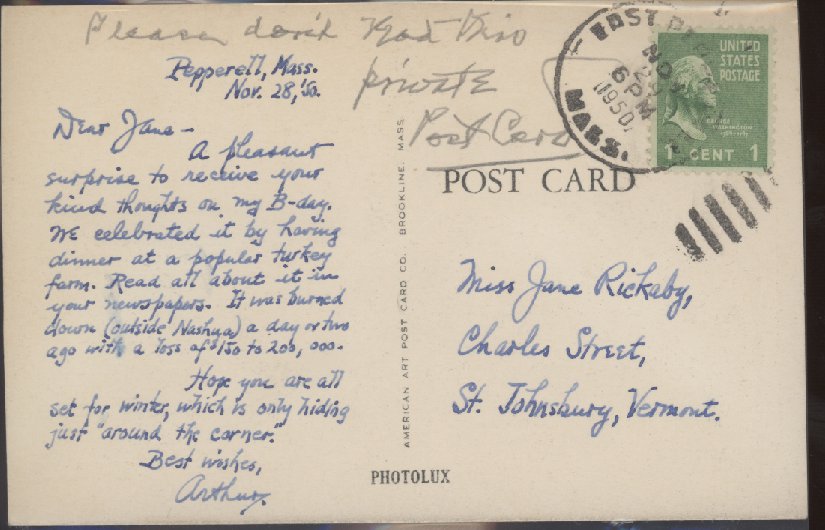 Please don't Read This
private
Post Card
Pepperell, Mass.
Nov. 28, '50.
Dear Jane –
A pleasant
surprise to receive your
kind thoughts on my B-day.
We celebrated it by having
dinner at a popular turkey
farm. Read all about it in
your newspapers. It was burned
down (outside Nashua) a day or two
ago with a loss of $150 to 200,000.
Hope you are all
set for winter, which is only hiding
just "around the corner."
Best wishes,
Arthur.
AMERICAN ART POST CARD CO. BROOKLINE, MASS
PHOTOLUX
POST CARD
EAST
NOV
29
6 PM
1950
MASS.
UNITED
STATES
POSTAGE
GEORGE
WASHINGTON
1 CENT 1
Miss Jane Rickaby,
Charles Street,
St. Johnsbury, Vermont.